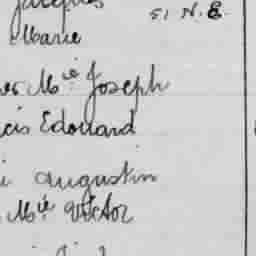 Jacques
51 N. E.
Marie
Mie Joseph
cis Edouard
i Augustin
Mie Victor